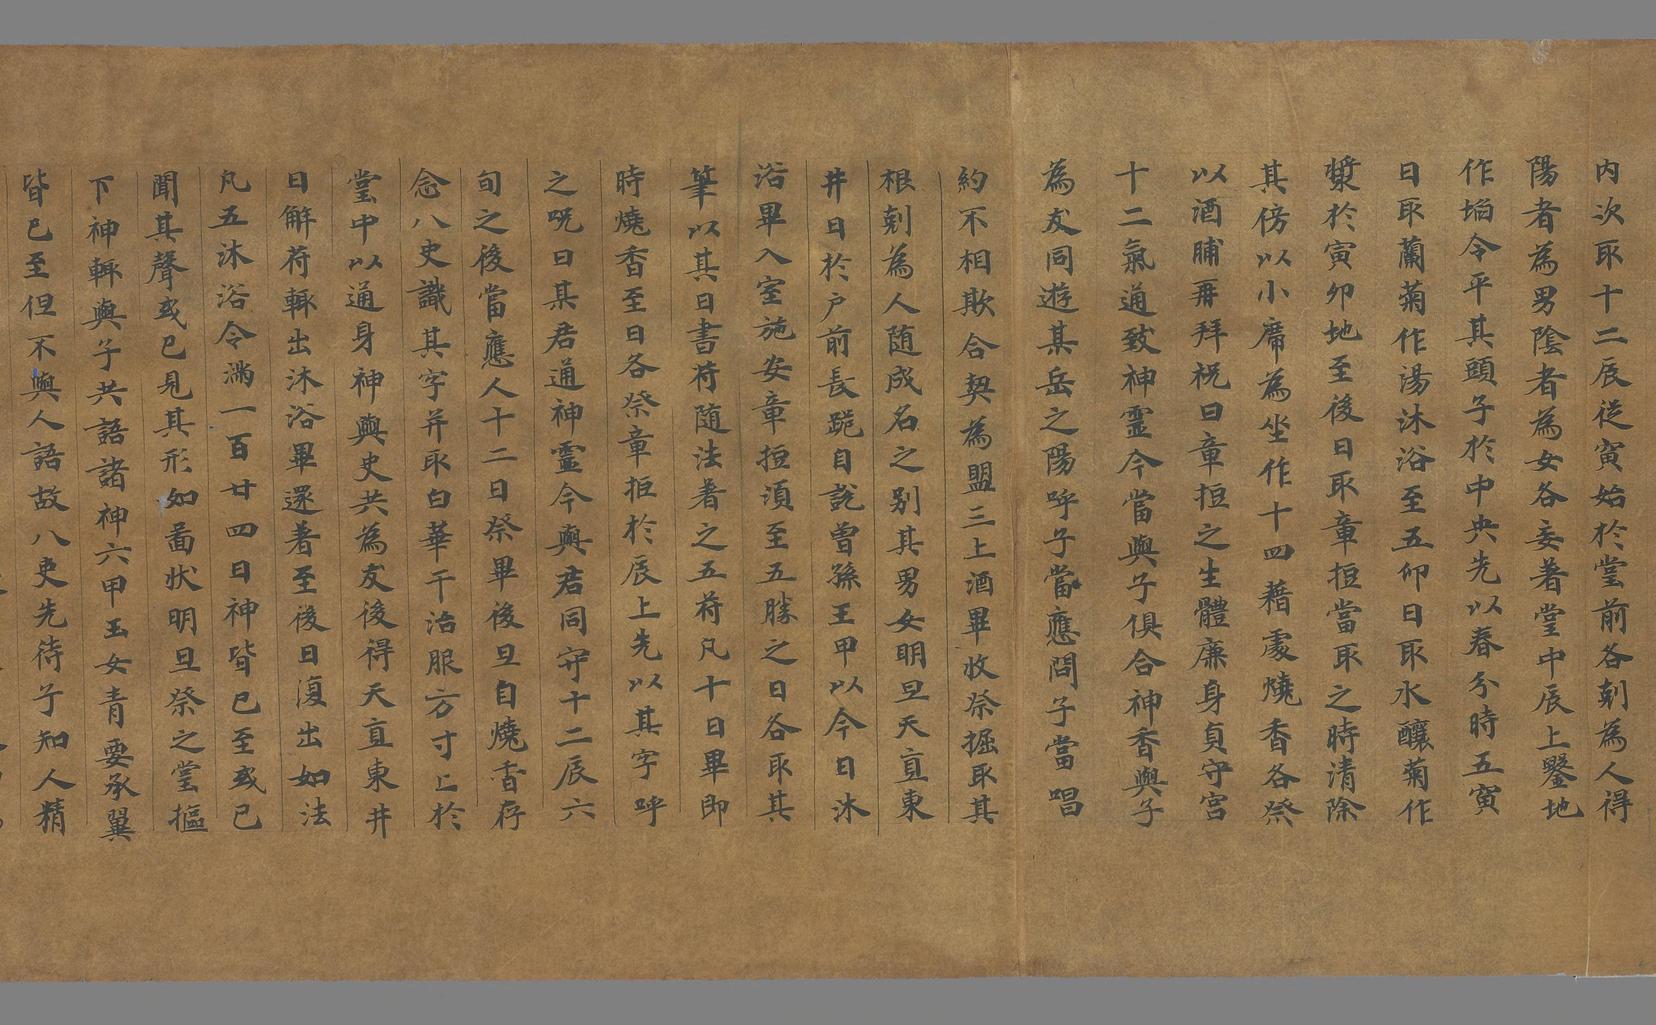 内次取十二辰従寅始於堂前各刻為人得
陽者為男陰者為女各委著堂中辰上鑿地
作塪令平其頭子於中央先以春分時五寅
日取蘭菊作湯沐浴至五卯日取水釀菊作
漿於寅卯地至後日取章拒當取之時清除
其傍以小席為坐作十四藉處燒香各祭
以酒脯再拜祝曰章拒之生體廉身貞守宮
十二氣通致神靈今當與子俱合神香與子
為友同遊某岳之陽呼子當應問子當唱
約不相欺合契為盟三上酒畢收祭掘取其
根刻為人随成名之别其男女明旦天亶東
井日於户前長跪自說曾孫王甲以今日沐
浴畢入室施安章拒湏至五勝之日各取其
筆以其日書符随法著之五符凡十日畢即
時燒香至日各祭章拒於辰上先以其字呼
之呪曰某君通神靈今與君同守十二辰六
旬之後當應人十二日祭畢後旦自燒香存
念八史識其字并取白華干治服方寸匕於
堂中以通身神與史共為友後得天亶東井
日解符輙出沐浴畢還著至後日復出如法
凡五沐浴令滿一百廿四日神皆已至或已
聞其聲或已見其形如啚狀明旦祭之堂摳
下神輙與子共語諸神六甲玉女青要承翼
皆已至但不與人語故八吏先待子知人精